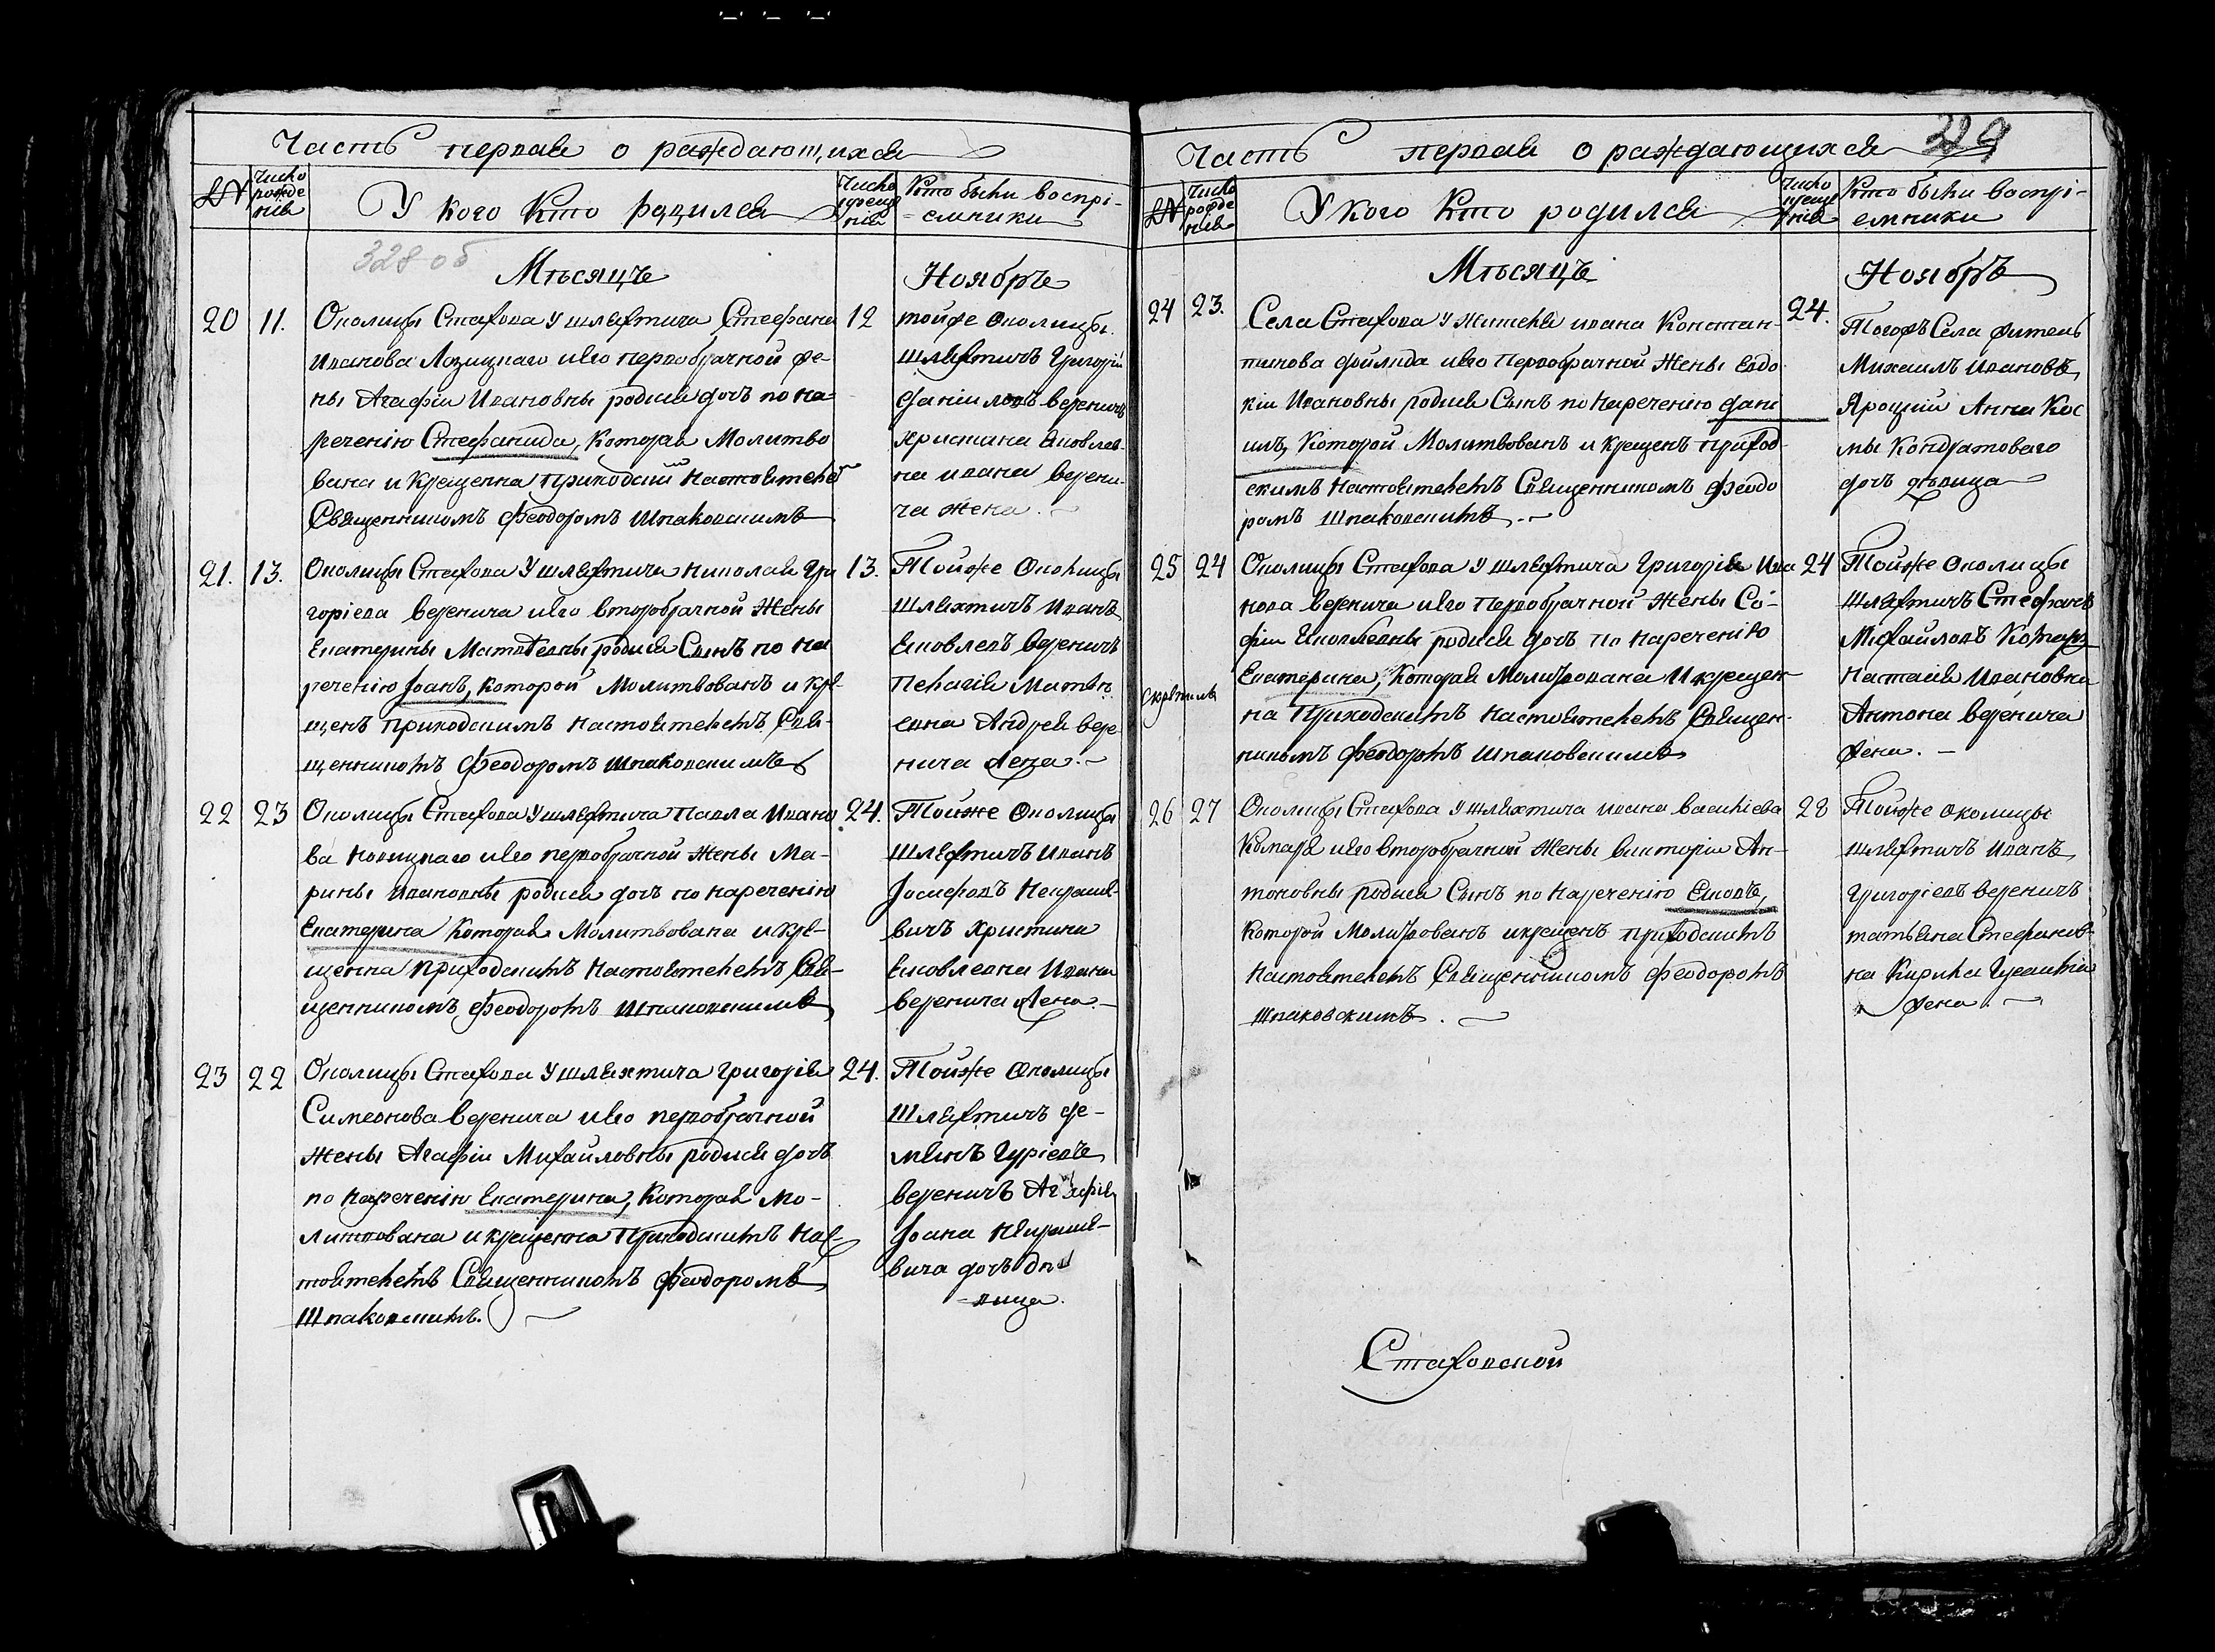 Часть первая о раждающихся
№
Число рожденія
У кого кто родился
Число крещенія
Кто были воспріемники
328 об
Мѣсяцъ Ноябрь
20 11.
Околицы Стахова у шляхтича Стефана
Иванова Лозицкаго и его первобрачной же-
ны Агафіи Ивановны родися дочь по на-
реченію Стефанида, которая молитво
вана и крещенна приходскій настоятель
Священникомъ Феодоромъ Шпаковскимъ
12
тойже околицы
шляхтичъ Григорій
Даніиловъ вереничъ
христина Яковлев-
на ивана верени-
ча жена.
21. 13.
Околицы Стахова у шляхтича Николая Гри
горіева веренича и его второбрачной жены
Екатерины Матвѣевны родися Сынъ по на
реченію Іоанъ, которой молитвованъ и кре-
щенъ приходскимъ настоятелемъ Свя-
щенникомъ Феодоромъ Шпаковскимъ
13.
Тойже Околицы
шляхтичъ Иванъ
Яковлевъ вереничъ
Пелагія Матвѣ
евна Андрея вере
нича жена.
22 23
Околицы Стахова у шляхтича Павла Ивано
ва Новицкаго и его первобрачной жены Ма-
рины Ивановны родися дочь по нареченію
Екатерина которая молитвована и кре-
щенна приходскимъ настоятелемъ Свя-
щенникомъ Феодоромъ Шпаковскимъ
24.
Тойже Околицы
шляхтичъ Иванъ
Іосифовъ Некраше-
вичъ христина
Яковлевна Ивана
веренича жена.
23 22
Околицы Стахова у шляхтича Григорія
Симеонова веренича и его первобрачной
жены Агафіи Михайловны родися дочь
по нареченію Екатерина, которая мо-
литвована и крещенна приходскимъ нас-
тоятелемъ Священникомъ Феодоромъ
Шпаковскимъ.
24.
Тойже Околицы
шляхтичъ Де-
міянъ Гуріевъ
вереничъ Агафія
Іоана Некраше-
вича дочь дѣ
вица.
Часть первая о раждающихся 329
№
Число рожденія
У кого кто родился
Число крещенія
Кто были воспріемники
Мѣсяцъ Ноябрь
24 23.
Села Стахова у жителя ивана Констан-
тинова и его первобрачной жены Евдо
кіи Ивановны родися Сынъ по нареченію Дані
илъ, которой молитвованъ и крещенъ приход-
скимъ настоятелемъ Священникомъ Феодо
ромъ Шпаковскимъ.
24.
Тогожъ Села житель
Михаилъ Ивановъ
Яроцкій Анна Кос
мы Кондратоваго
дочь дѣвица
25 24
Околицы Стахова у шляхтича Григорія Ива
нова веренича и его первобрачной жены Со-
фіи Яковлевны родися дочь по нареченію
Екатерина, которая молитвована и крещен-
на приходскимъ настоятелемъ Священ-
никомъ Феодоромъ Шпаковскимъ
24
Тойже околицы
шляхтичъ Стефанъ
Михайловъ Комаръ
Настасія Ивановна
Антона веренича
жена.
скрѣпилъ
26 27
Околицы Стахова у шляхтича ивана Васильева
Комаря и его второбрачной жены викторіи Ан-
тоновны родися Сынъ по нареченію Яковъ,
которой молитвованъ и крещенъ приходскимъ
настоятелемъ Священникомъ Феодоромъ
Шпаковскимъ.
28
Тойже околицы
шляхтичъ Иванъ
Григоріевъ вереничъ
татьяна Стефанов-
на Кирила
жена.
Стаховской